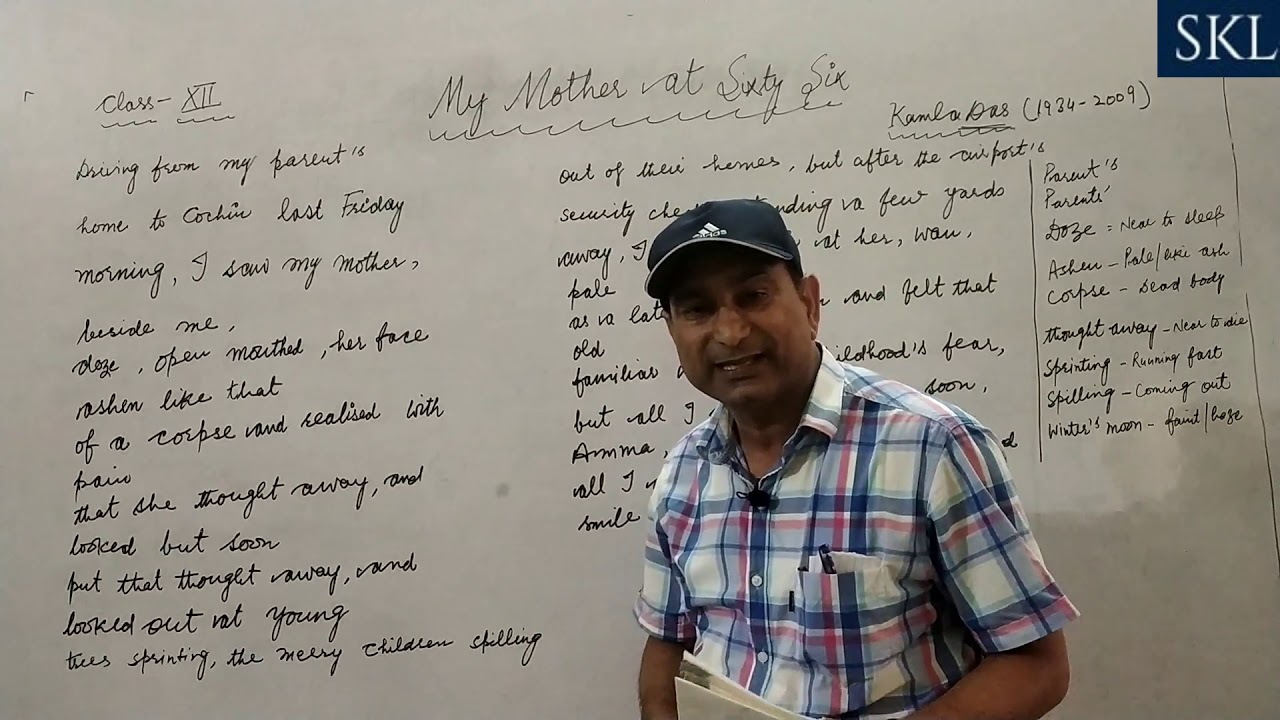 SKL
Class - XII
My Mother at Sixty Six
Kamla Das (1934-2009)
Driving from my parent's
home to Cochin last Friday
morning, I saw my mother,
beside me,
doze, open mouthed, her face
ashen like that
of a corpse and realised with
pain
that she thought away, and
looked but soon
put that thought away, and
looked out at young
trees sprinting, the merry children spilling
out of their homes, but after the airport's
security standing a few yards
away, I at her, wan,
pale
as a and felt that
old
familiar childhood's fear,
but all I soon,
Amma,
all I
smile
Parent's
Parents'
Doze = Near to sleep
Ashen - Pale/like ash
Corpse - Dead body
thought away - Near to die
Sprinting - Running fast
Spilling - Coming out
Winter's moon - faint/haze
adidas